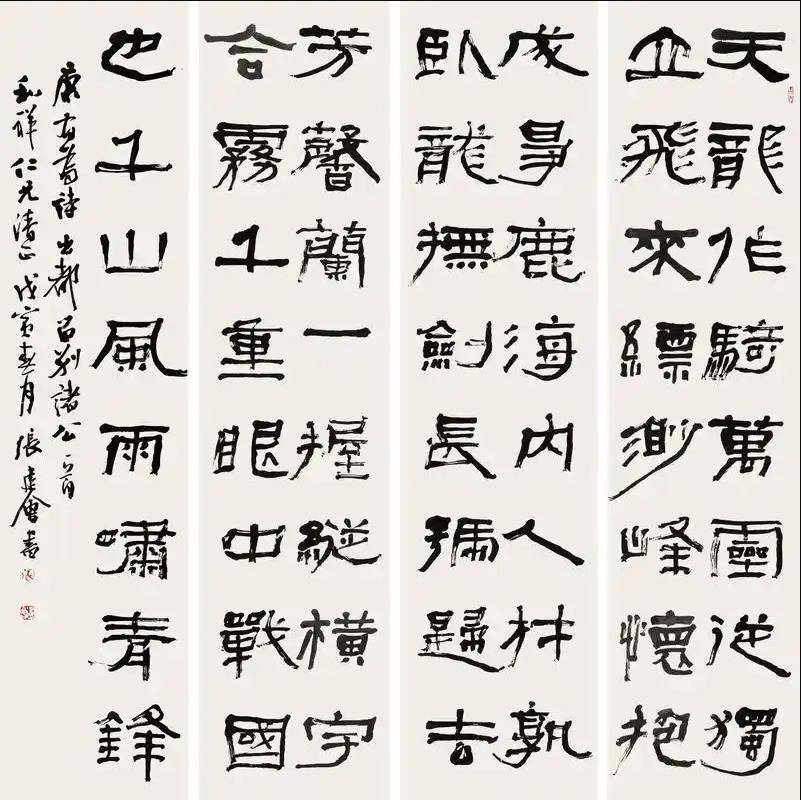 天龍作騎萬靈從獨
立飛來縹渺峰懷抱
成爭鹿海內人材孰
臥龍撫劍長號歸去
芳馨蘭一握縱橫宇
合霧千重眼中戰國
也千山風雨嘯青鋒
康有為詩出都留別諸公一首
和祥仁兄清正戊寅春月張建會書